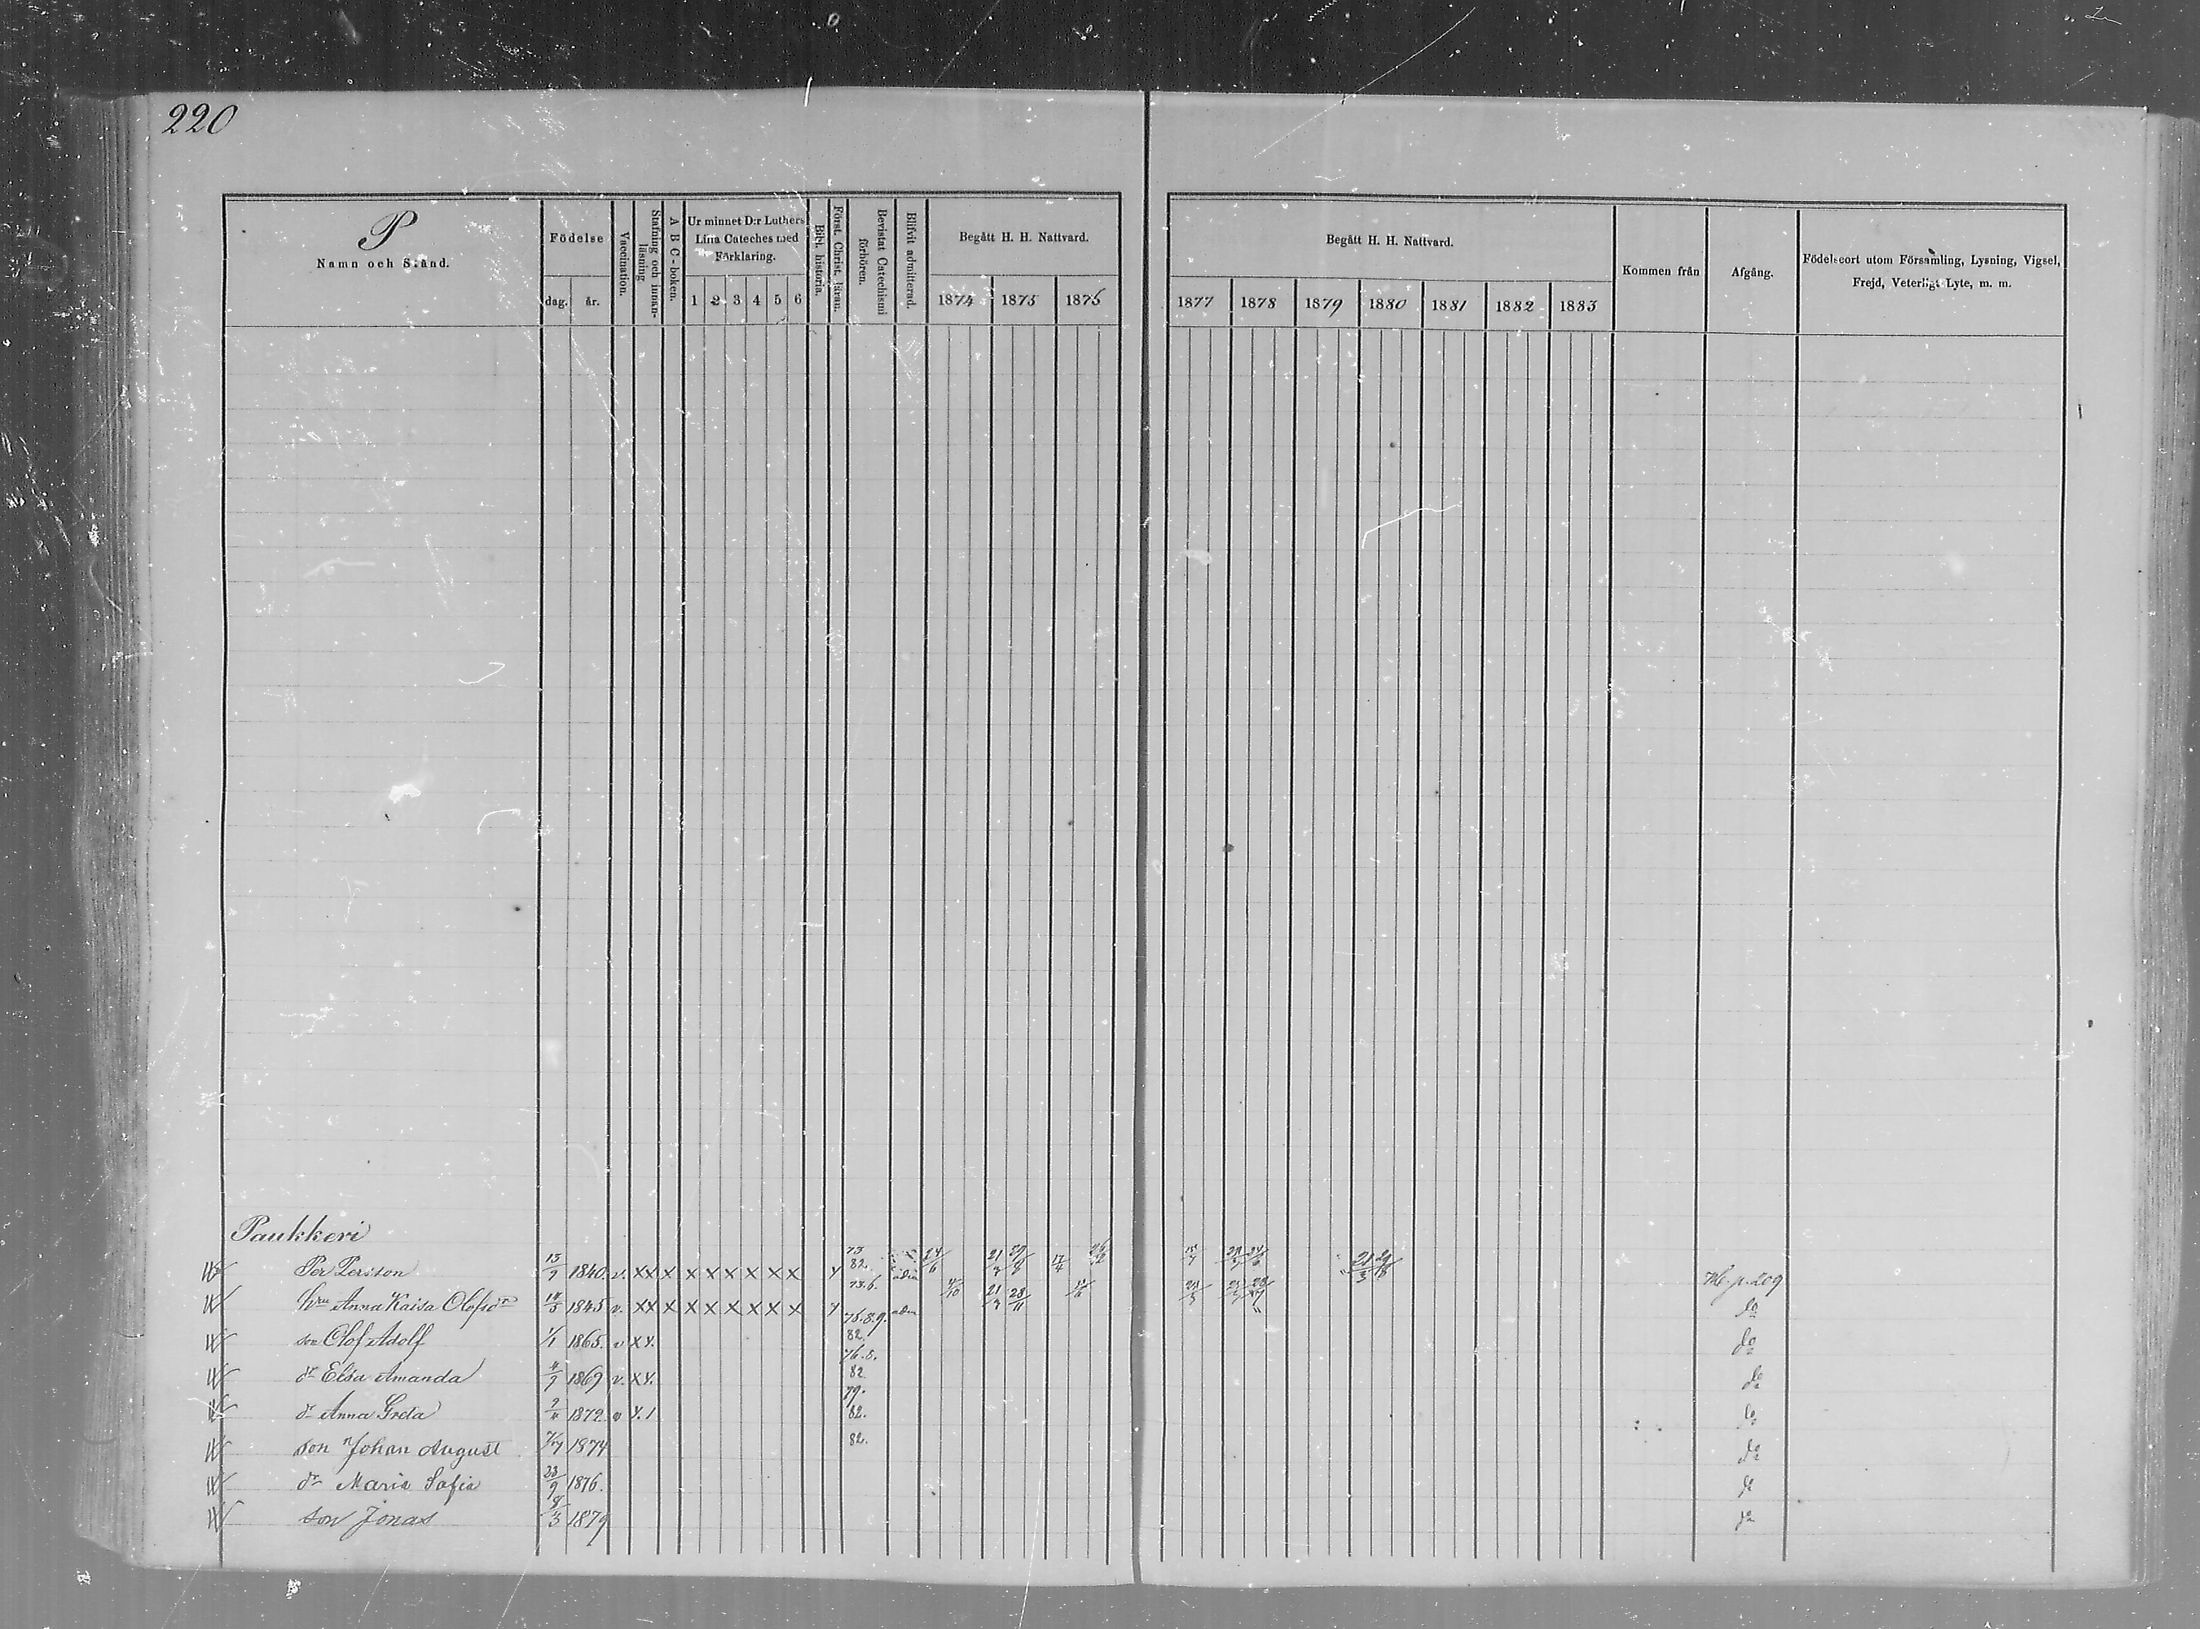 220
P
Namn och Stånd.
Födelse
dag. år.
Vaccination.
Stafning och innan-
läsning
A B C-boken.
Ur minnet D:r Luthers
Lilla Cateches med
Förklaring.
1 2 3 4 5 6
Bibl. historia.
Först. Christ. läran.
Bevistat Catechismi
förhören.
Blifvit admitterad.
Begått H. H. Nattvard.
1874 1875 1876
Begått H. H. Nattvard.
1877 1878 1879 1880 1881 1882 1883
Kommen från
Afgång.
Födelseort utom Församling, Lysning, Vigsel,
Frejd, Veterligt Lyte, m. m.
Paukkeri
Per Persson 13/9 1840. v. xx x x x x x x x 73 82. 24/6 21/3
Hu Anna Kaisa Olofsdr 1845 v. xx x x x x x x x 73.6. p. 209
son Olof Adolf 1/1 1865. v xx. 75.8.9. 82. do
dr Elsa Amanda 1869 v. xx. 76.8. 82 do
dr Anna Greta 1872 79. 82. do
son Johan August 1874 82. do
dr Maria Sofia 23/9 1876. do
son Jonas 8/3 1879 do